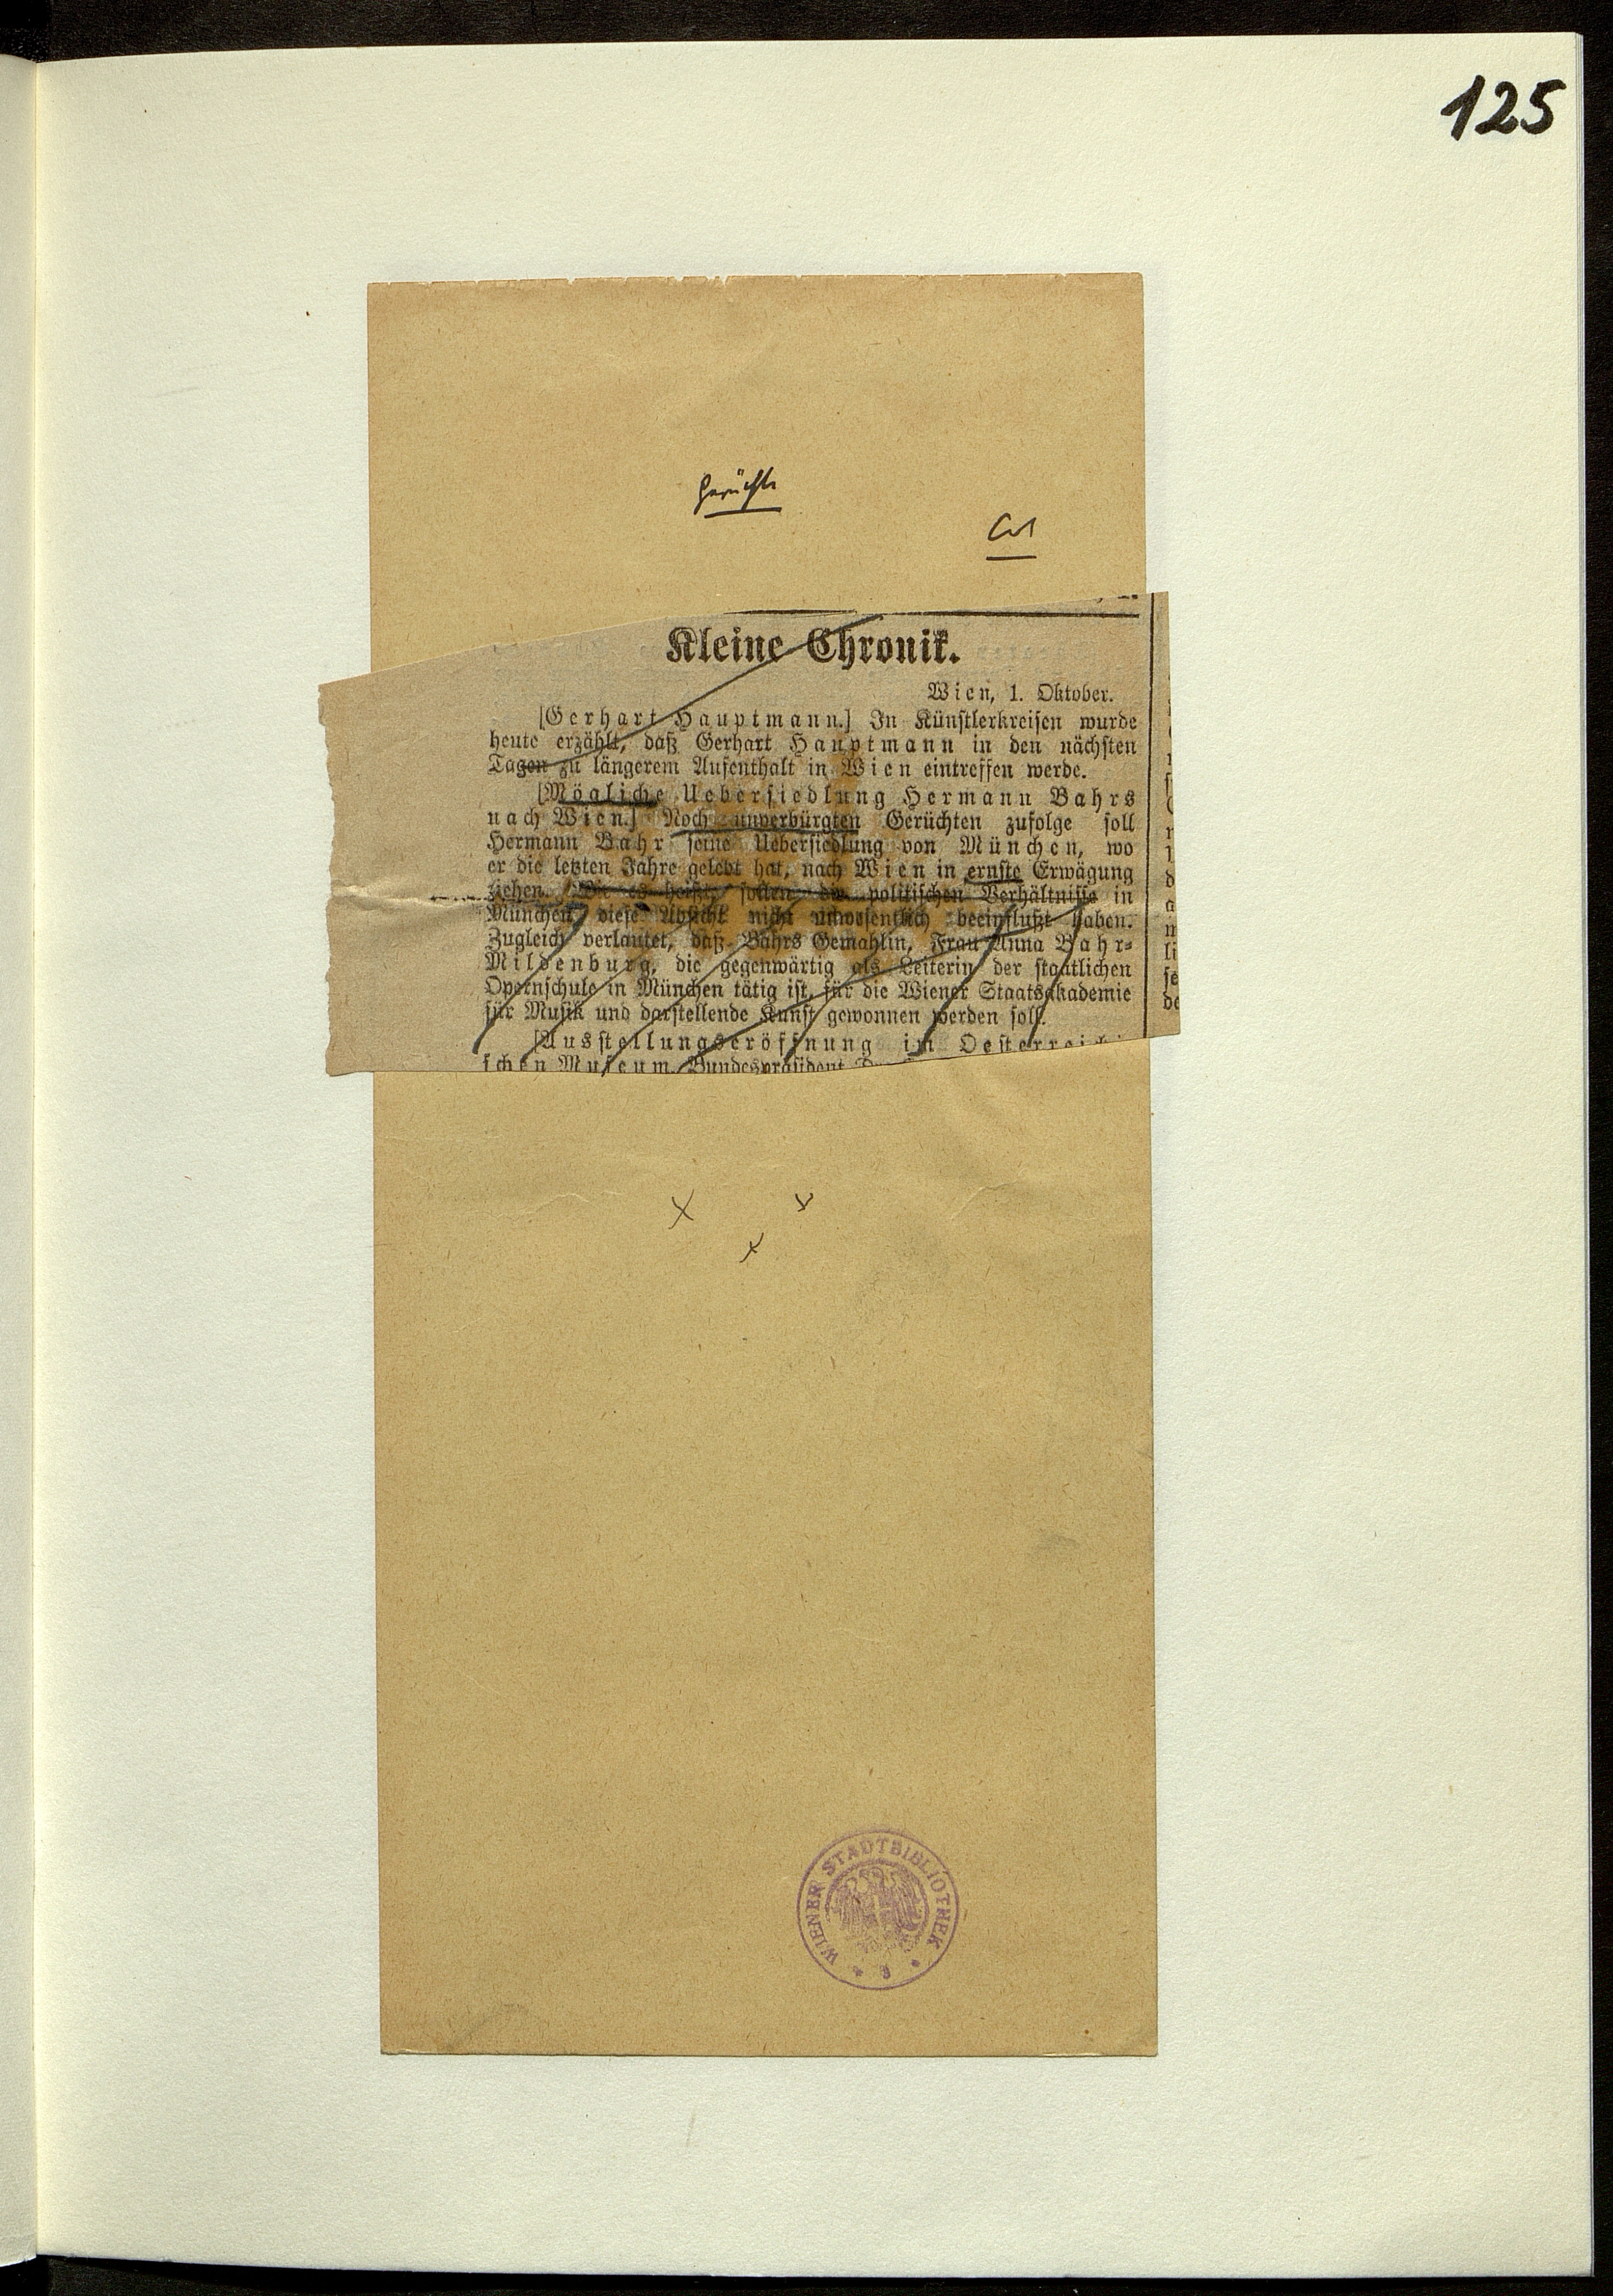 125
Gerüchte
Kleine Chronik.
Wien, 1. Oktober.
[Gerhart Hauptmann.] In Künstlerkreisen wurde
heute erzählt, daß Gerhart Hauptmann in den nächsten
Tagen zu längerem Aufenthalt in Wien eintreffen werde.
[Mögliche Uebersiedlung Hermann Bahrs
nach Wien.] Noch unverbürgten Gerüchten zufolge soll
Hermann Bahr seine Uebersiedlung von München, wo
er die letzten Jahre gelebt hat, nach Wien in ernste Erwägung
ziehen. Wie es heißt, sollen die politischen Verhältnisse in
München diese Absicht nicht unwesentlich beeinflußt haben.
Zugleich verlautet, daß Bahrs Gemahlin, Frau Anna Bahr-
Mildenburg, die gegenwärtig als Leiterin der staatlichen
Opernschule in München tätig ist, für die Wiener Staatsakademie
für Musik und darstellende Kunst gewonnen werden soll.
[Ausstellungseröffnung im Oesterreichi
schen Museum. Bundespräsident
WIENER STADTBIBLIOTHEK